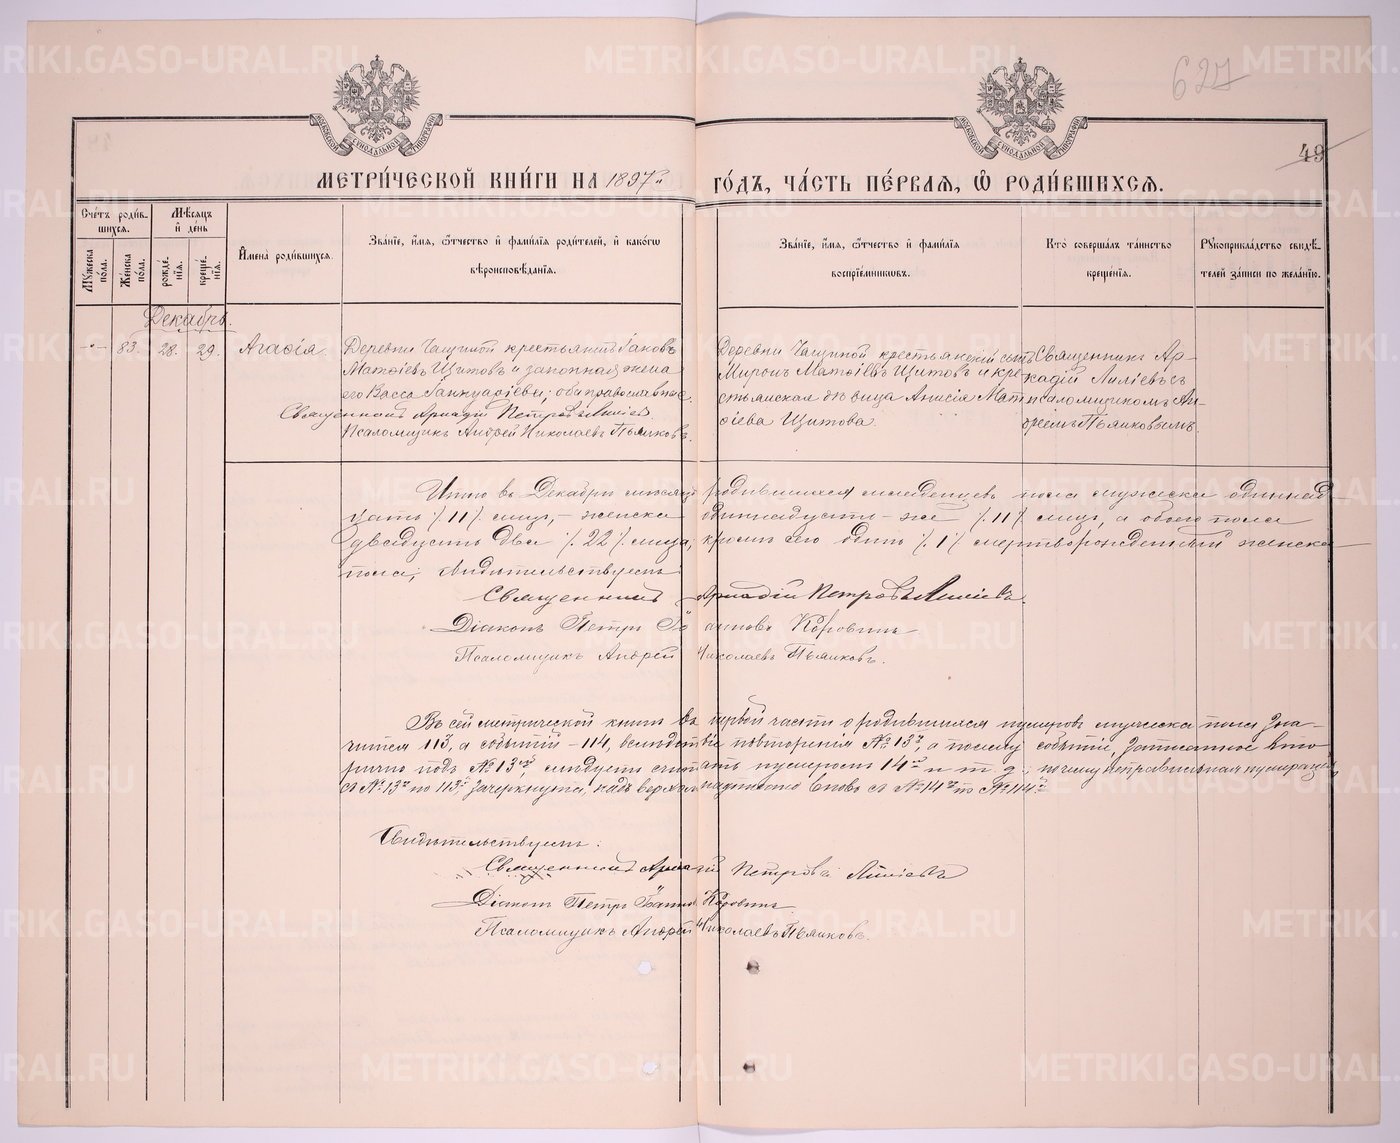 627
49
МОСКОВСКОЙ СѴНОДАЛЬНОЙ ТИПОГРАФІИ
МОСКОВСКОЙ СѴНОДАЛЬНОЙ ТИПОГРАФІИ
МЕТРИ́ЧЕСКОЙ КНИ́ГИ НА 1897й ГО́ДЪ, ЧА́СТЬ ПЕ́РВАЯ, Ѽ РОДИ́ВШИХСЯ.
Сче́тъ роди́вшихся.
Му́жеска по́ла.
Же́нска по́ла.
Мѣ́сяцъ и́ де́нь
рожде́нїя.
креще́нїя.
И҆мена̀ роди́вшихся.
Зва́нїе, и҆́мя, ѻ҆́тчество и҆ фами́лїя роди́телей, и҆ како́гѡ вѣроисповѣ́данїя.
Зва́нїе, и҆́мя, ѻ҆́тчество и҆ фами́лїя воспрїе́мниковъ.
Кто̀ соверша́лъ та́инство креще́нїя.
Рꙋкоприкла́дство свидѣ́телей за́писи по жела́нїю.
Декабрь.
-"- 83. 28. 29. Агаѳія.
Деревни Чащиной крестьянинъ Іаковъ
Матѳіевъ Щитовъ и законная жена
его Васса Іаннуаріева; оба православные.
Священникъ Аркадій Петровъ Лиліевъ
Псаломщикъ Андрей Николаевъ Пьянковъ.
Деревни Чащиной крестьянскій сынъ
Миронъ Матѳіевъ Щитовъ и кре-
стьянская дѣвица Анисія Мат-
ѳіева Щитова.
Священникъ Ар-
кадій Лиліевъ съ
псаломщикомъ Ан-
дреемъ Пьянковымъ.
Итого въ Декабрѣ мѣсяцѣ родившихся младенцевъ пола мужеска одиннад-
цать /.11/. лицъ,- женска одиннадцать-же /.11/. лицъ, а обоего пола
двадцать два /.22/. лица, кромѣ сего одинъ /.1/. мертворожденный женска
пола; свидѣтельствуемъ
Священникъ Аркадій Петровъ Лиліевъ.
Діаконъ Петръ Іоанновъ Коровинъ
Псаломщикъ Андрей Николаевъ Пьянковъ.
Въ сей метрической книгѣ въ первой части о родившихся нумеровъ мужеска пола зна-
чится 113, а событій - 114, вслѣдствіе повторенія № 13го, а потому событіе, записанное вто-
рично подъ № 13мъ, слѣдуетъ считать нумеромъ 14мъ и т. д.; почему неправильная нумерація
съ № 13го по 113й зачеркнута, надъ верхомъ надписано вновь съ № 14го по № 114й
Свидѣтельствуемъ:
Священникъ Аркадій Петровъ Лиліевъ
Діаконъ Петръ Іоанновъ Коровинъ
Псаломщикъ Андрей Николаевъ Пьянковъ.
METRIKI.GASO-URAL.RU